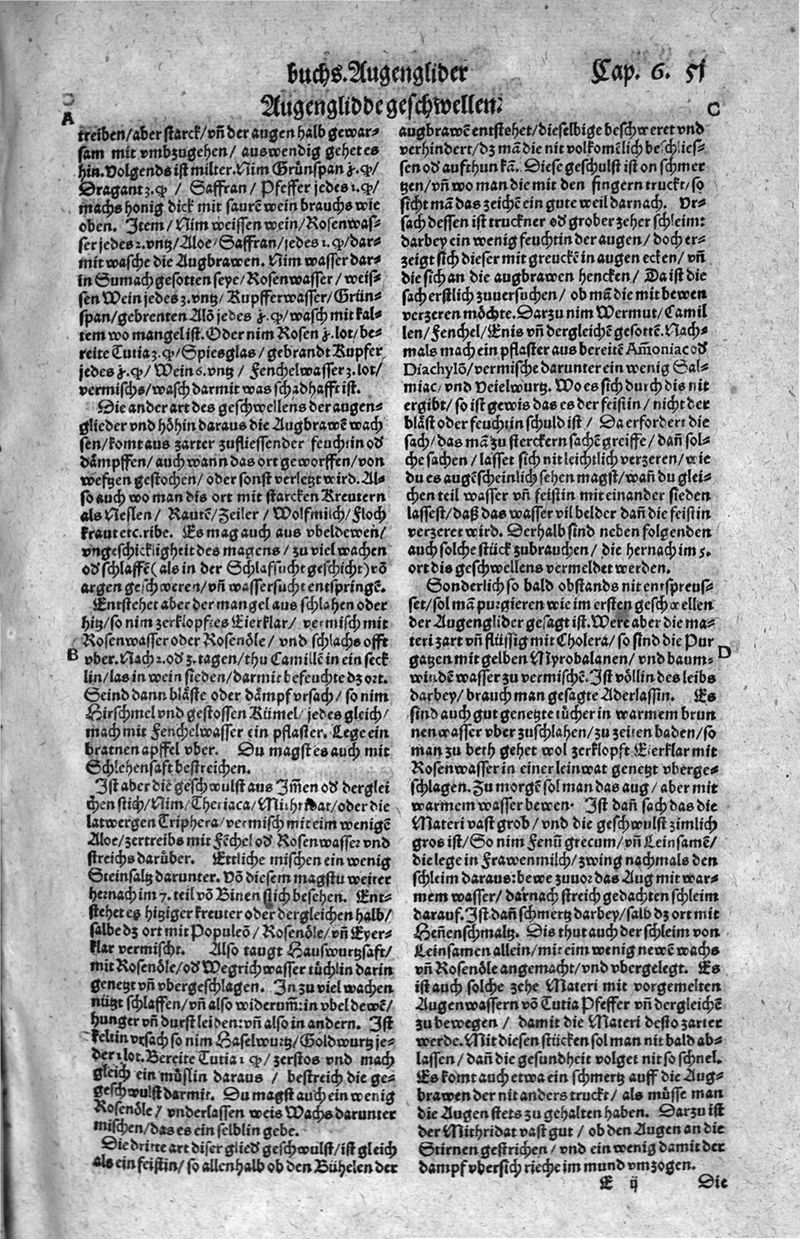 buchs. Augenglider Cap. 6. 51
Augenglidde geschwellen:
A
treiben/aber starck/vñ der augen halb gewar-
sam mit vmbzugehen/ auswendig gehet es
hin. Volgends ist milter. Nim Grünspan
Dragant / Saffran / Pfeffer jedes
machs honig dick mit saurẽ wein brauchs wie
oben. Item/ Nim weissen wein/Rosenwas-
ser jedes 2.vntz/ Aloe/ Saffran/ jedes /dar-
mit wasche die Augbrawen. Nim wasser dar-
in Sumach gesotten seye/Rosenwasser/ weis-
sen Wein jedes 3.vntz/ Kupfferwasser/Grün-
span/gebrenten Alõ jedes /wasch mit kal-
tem wo mangel ist. Oder nim Rosen lot/be-
reite Tutia /Spiesglas/ gebrandt Kupfer
jedes / Wein 6.vntz / Fenchelwasser 3.lot/
vermischs/wasch darmit was schadhafft ist.
Die ander art des geschwellens der augen-
glieder vnd höhin daraus die Augbrawẽ wach
sen/komt aus zarter zufliessender feuchtin od
dämpffen/auch wann das ort geworffen/von
wefzen gestochen/oder sonst verletzt wird. Al-
so auch wo man dis ort mit starcken Kreutern
als Nesslen/ Rautẽ/Zeiler / Wolfmilch/Floch
kraut etc. ribe. Es mag auch aus vbeldewen/
vngeschickligheit des magens/zu viel wachen
od schlaffẽ(als in der Schlafsucht geschicht)võ
argen geschweren/vñ wassersucht entspringẽ.
Entstehet aber der mangel aus schlahen oder
hitz/so nim zerklopftes Eierklar/ vermisch mit
Rosenwasser oder Rosenöle/ vnd schlachs offt
B
vber. Nach 2. od 3. tagen/thu Camillẽ in ein seck
lin/las in wein sieden/darmit befeuchte dz ort.
Seind dann bläste oder dämpf vrsach/ so nim
Hirschmel vnd gestossen Kümel/ jedes gleich/
mach mit Fenchelwasser ein pflaster. Lege ein
bratnen apffel vber. Du magst es auch mit
Schlehensaft bestreichen.
Ist aber die geschwulst aus Im̃en od derglei
chen stich/Nim/Theriaca/Mithridat/oder die
latwergen Triphera/vermisch mit eim wenigẽ
Aloe/zertreibs mit Fẽchel od Rosenwasser vnd
streichs darüber. Ettliche mischen ein wenig
Steinsaltz darunter. Võ diesem magstu weiter
hernach im 7. teil võ Binen stich besehen. Ent-
stehet es hitziger kreuter oder dergleichen halb/
salbe dz ort mit Populeõ/Rosenöle/vñ Eyer-
klar vermischt. Also taugt Hauswurtzsaft/
mit Rosenöle/od Wegrichwasser tüchlin darin
genetzt vñ vbergeschlagen. In zu viel wachen
nützt schlaffen/vñ also widerum̃: in vbel dewẽ/
hunger vñ durst leiden: vñ also in andern. Ist
keltin vrsach so nim Haselwurtz/Goldwurtz je-
der 1.lot. Bereite Tutia /zerstos vnd mach
gleich ein müslin daraus / bestreich die ge-
geschwulst darmit. Du magst auch ein wenig
Rosenöle/ vnderlassen weis Wachs darunter
mischen/das es ein selblin gebe.
Die dritte art diser glied geschwulst/ist gleich
als ein feistin/so allenhalb ob den Bühelen der
C
augbrawẽ entstehet/dieselbige beschweret vnd
verhindert/dz mã die nit volkomẽlich beschlies-
sen od aufthun kã. Diese geschulst ist on schmer
tzen/vñ wo man die mit den fingern truckt/so
sicht mã das zeichẽ ein gute weil darnach. Vr-
sach dessen ist truckner od grober zeher schleim:
darbey ein wenig feuchtin der augen/doch er-
zeigt sich dieser mit greuckẽ in augen ecken/ vñ
die sich an die augbrawen hencken/ Da ist die
sach erstlich zuuersuchen/ ob mã die mit bewen
verzeren möchte. Darzu nim Wermut/Camil
len/Fenchel/Enis vñ dergleichẽ gesotẽ. Nach-
mals mach ein pflaster aus bereitẽ Am̃oniac od
Diachylõ/vermische darunter ein wenig Sal-
miac/vnd Veielwurtz. Wo es sich durch dis nit
ergibt/so ist gewis das es der feistin/nicht der
bläst oder feuchtin schuld ist/ Da erfordert die
sach/das mã zu sterckern sachẽ greiffe/dañ sol-
che sachen/ lasset sich nit leichtlich verzeren/wie
du es augẽscheinlich sehen magst/wañ du glei-
chen teil wasser vñ feistin miteinander sieden
lassest/daß das wasser vil belder dañ die feistin
verzeret wird. Derhalb sind neben folgenden
auch solche stück zubrauchen/ die hernach im 5.
ort dis geschwellens vermeldet werden.
Sonderlich so bald obstands nit entspreus-
set/sol mã purgieren wie im ersten geschwellen
der Augenglider gesagt ist. Were aber die ma-
teri zart vñ flüssig mit Cholera/so sind die Pur
D
gatzen mit gelben Myrobalanen/ vnd baum-
windẽ wasser zu vermischẽ. Ist völlin des leibs
darbey/ brauch man gesagte Aderlassin. Es
sind auch gut genetzte tücher in warmem brun
nenwasser vber zuschlahen/zu zeiten baden/so
man zu beth gehet wol zerklopft Eierklar mit
Rosenwasser in einer leinwat genetzt vberge-
schlagen. Zu morgẽ sol man das aug/ aber mit
warmem wasser bewen. Ist dañ sach das die
Materi vast grob/ vnd die geschwulst zimlich
gros ist/So nim Fenũ grecum/vñ Leinsamẽ/
die lege in Frawenmilch/zwing nachmals den
schleim daraus: bewe zuuor das Aug mit war-
mem wasser/ darnach streich gedachten schleim
darauf. Ist dañ schmertz darbey/salb dz ort mit
Heñenschmaltz. Dis thut auch der schleim von
Leinsamen allein/mit eim wenig newẽ wachs
vñ Rosenöle angemacht/vnd vbergelegt. Es
ist auch solche zehe Materi mit vorgemelten
Augenwassern võ Tutia Pfeffer vñ dergleichẽ
zu bewegen / damit die Materi desto zarter
werde. Mit diesen stücken sol man nit bald ab-
lassen/ dañ die gesundheit volget nit so schnel.
Es komt auch etwa ein schmertz auff die Aug-
brawen der nit anders truckt/ als müsse man
die Augen stets zu gehalten haben. Darzu ist
der Mithridat vast gut/ ob den Augen an die
Stirnen gestrichen/ vnd ein wenig damit der
dampf vbersich rieche im mund vmzogen.
E ij Die